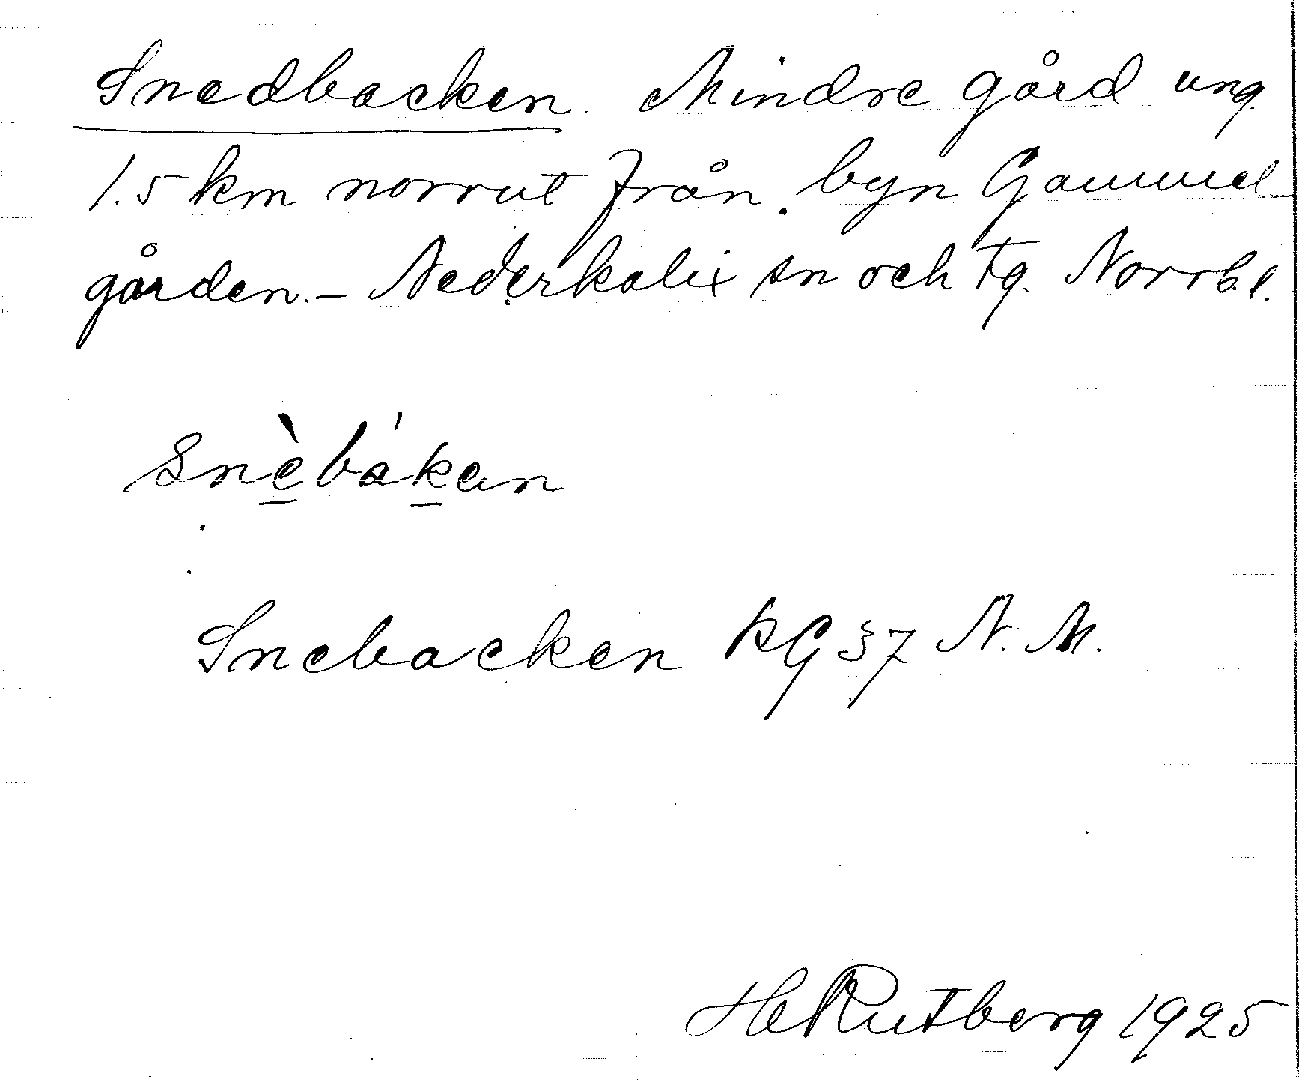 Snedbacken. Mindre gård ung.
1.5 km norrut från byn Gammel-
gården. – Nederkalix sn och tg. Norrb. l.
snè̱báḵan
Snebacken KG 37 N. M.
HRutberg 1925